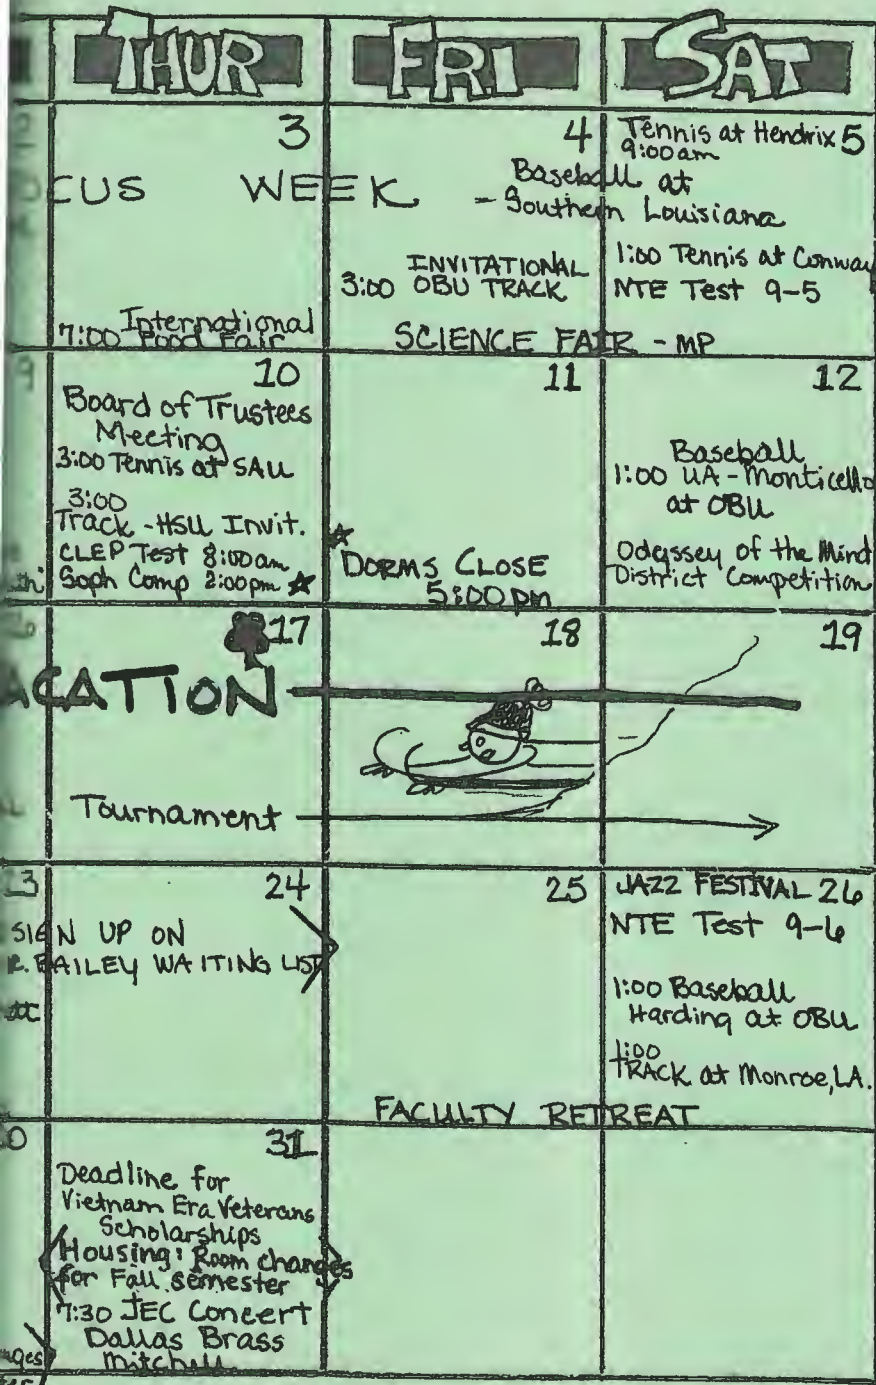 THUR FRI SAT
3
CUS WEEK
International
7:00 Food Fair
4
Baseball at
- Southern Louisiana
INVITATIONAL
3:00 OBU TRACK
SCIENCE FAIR - MP
Tennis at Hendrix 5
9:00am
1:00 Tennis at Conway
NTE Test 9-5
9
10
Board of Trustees
Meeting
3:00 Tennis at SAU
3:00
Track - HSU Invit.
CLEP Test 8:00am
Soph Comp 2:00pm ★
11
★
DORMS CLOSE
5:00pm
12
Baseball
1:00 UA - Monticello
at OBU
Odyssey of the Mind
District Competition
17
ACATION
Tournament
18
19
3
24
SIGN UP ON
R. BAILEY WAITING LIST
25
FACULTY RETREAT
JAZZ FESTIVAL 26
NTE Test 9-6
1:00 Baseball
Harding at OBU
1:00
TRACK at Monroe, LA.
0
31
Deadline for
Vietnam Era Veterans
Scholarships
Housing: Room changes
for Fall semester
7:30 JEC Concert
Dallas Brass
Mitchell